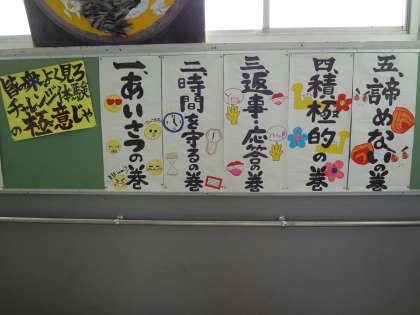 皆の衆よく見ろ
チャレンジ体験
の極意じゃ
一、あいさつの巻
二、時間を守るの巻
三、返事・応答の巻
四、積極的の巻
五、諦めないの巻